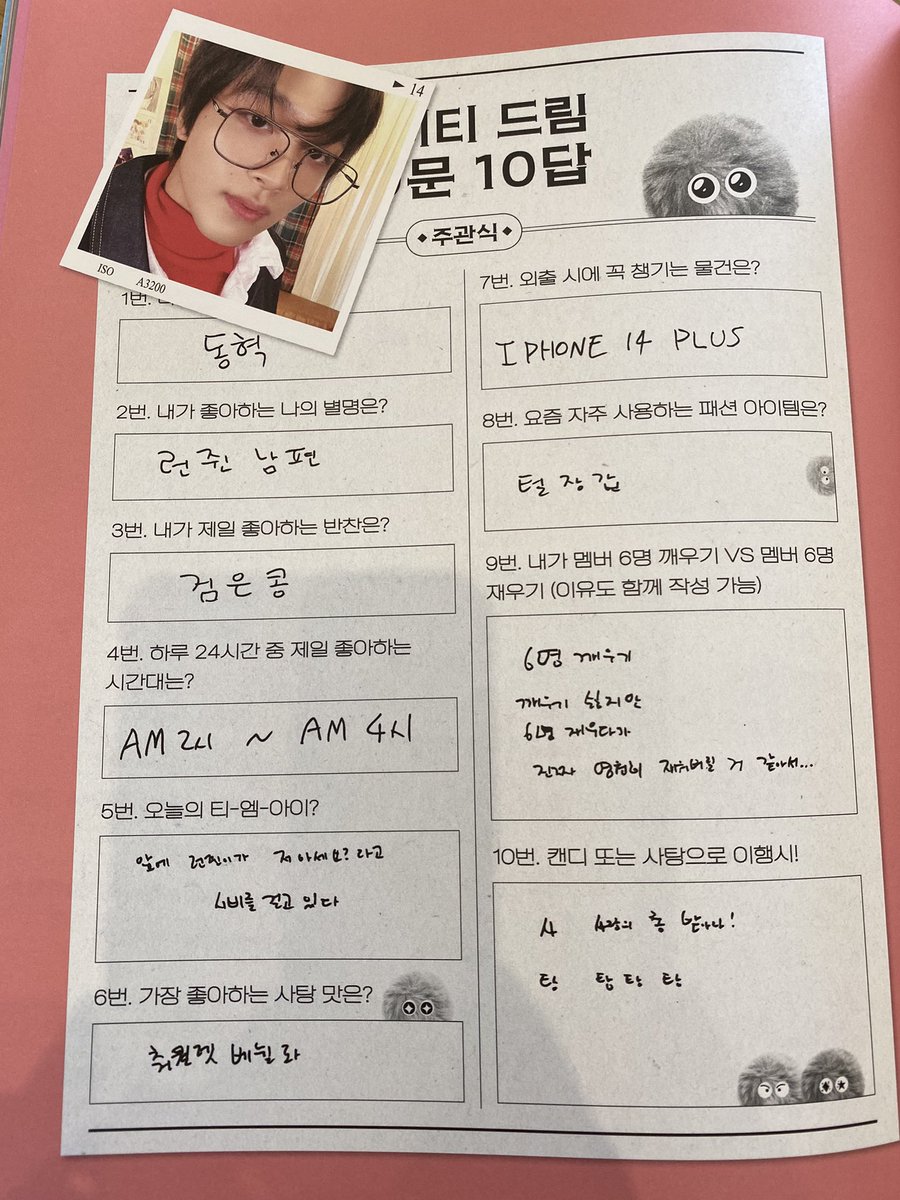 14
ISO A3200
티 드림
문 10답
주관식
1번.
동혁
2번. 내가 좋아하는 나의 별명은?
런쥔 남편
3번. 내가 제일 좋아하는 반찬은?
검은콩
4번. 하루 24시간 중 제일 좋아하는
시간대는?
AM 2시 ~ AM 4시
5번. 오늘의 티-엠-아이?
앞에 런쥔이가 저 아세요? 라고
시비를 걸고 있다
6번. 가장 좋아하는 사탕 맛은?
춰퀄렛 베뉠라
7번. 외출 시에 꼭 챙기는 물건은?
I PHONE 14 PLUS
8번. 요즘 자주 사용하는 패션 아이템은?
털장갑
9번. 내가 멤버 6명 깨우기 VS 멤버 6명
재우기 (이유도 함께 작성 가능)
6명 깨우기
깨우기 싫지만
6명 재우다가
진짜 영원히 재워버릴 거 같아서...
10번. 캔디 또는 사탕으로 이행시!
사 사랑의 총 맞아라!
탕 탕 탕 탕